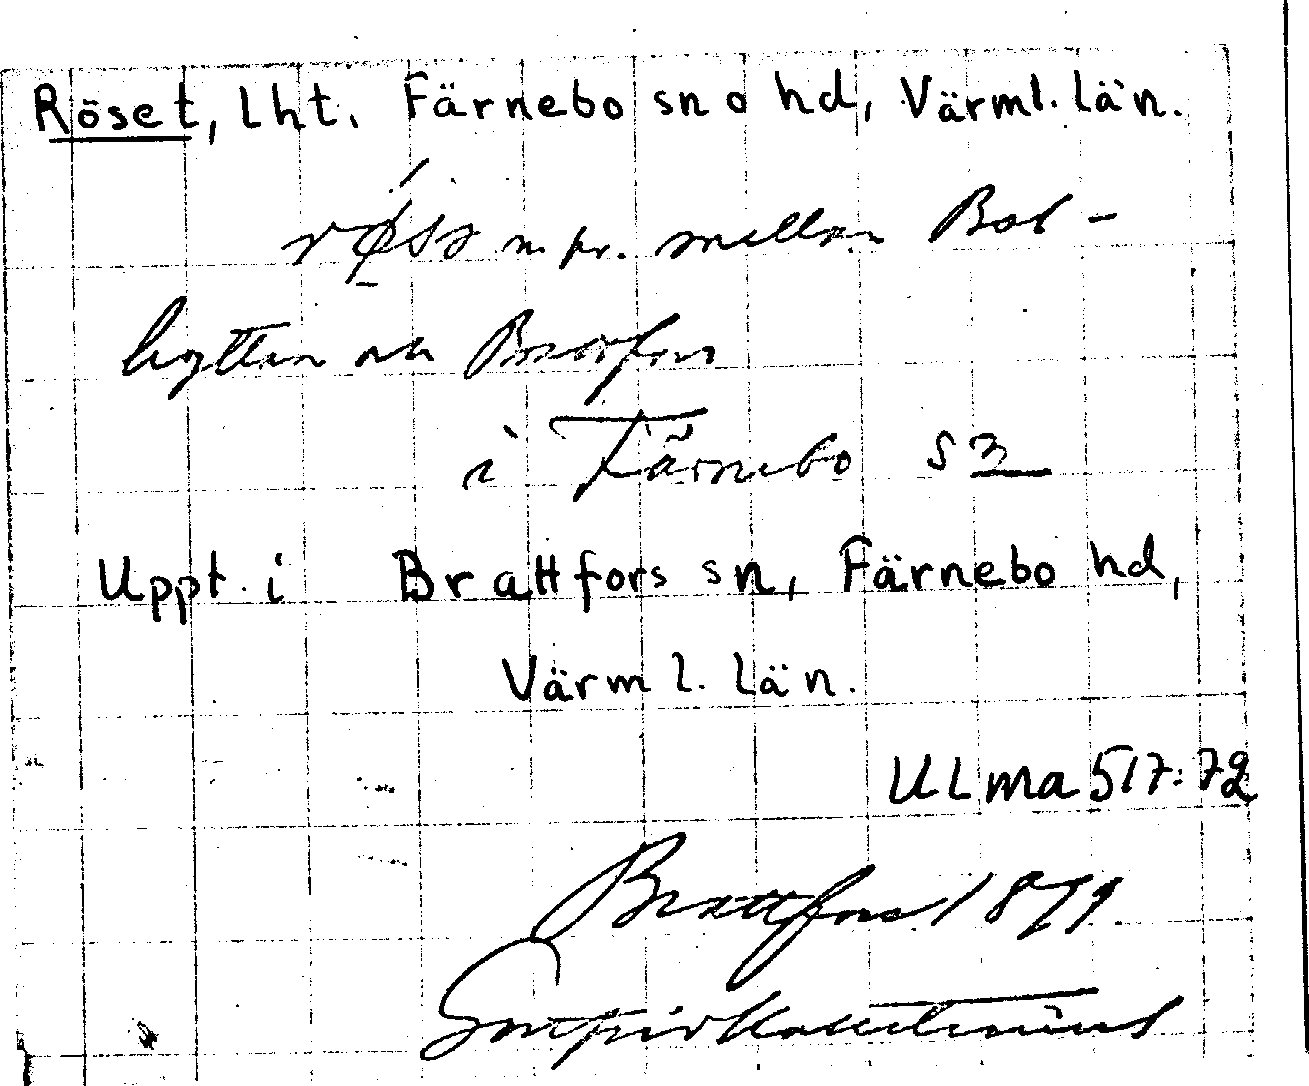 Röset, lht. Färnebo sn o hd, Värml. län.
n pr. mellan Bol-
hyttan och
i Färnebo S3
Uppt. i Brattfors sn, Färnebo hd,
Värml. län.
ULma 517:72
Brattfors 1879